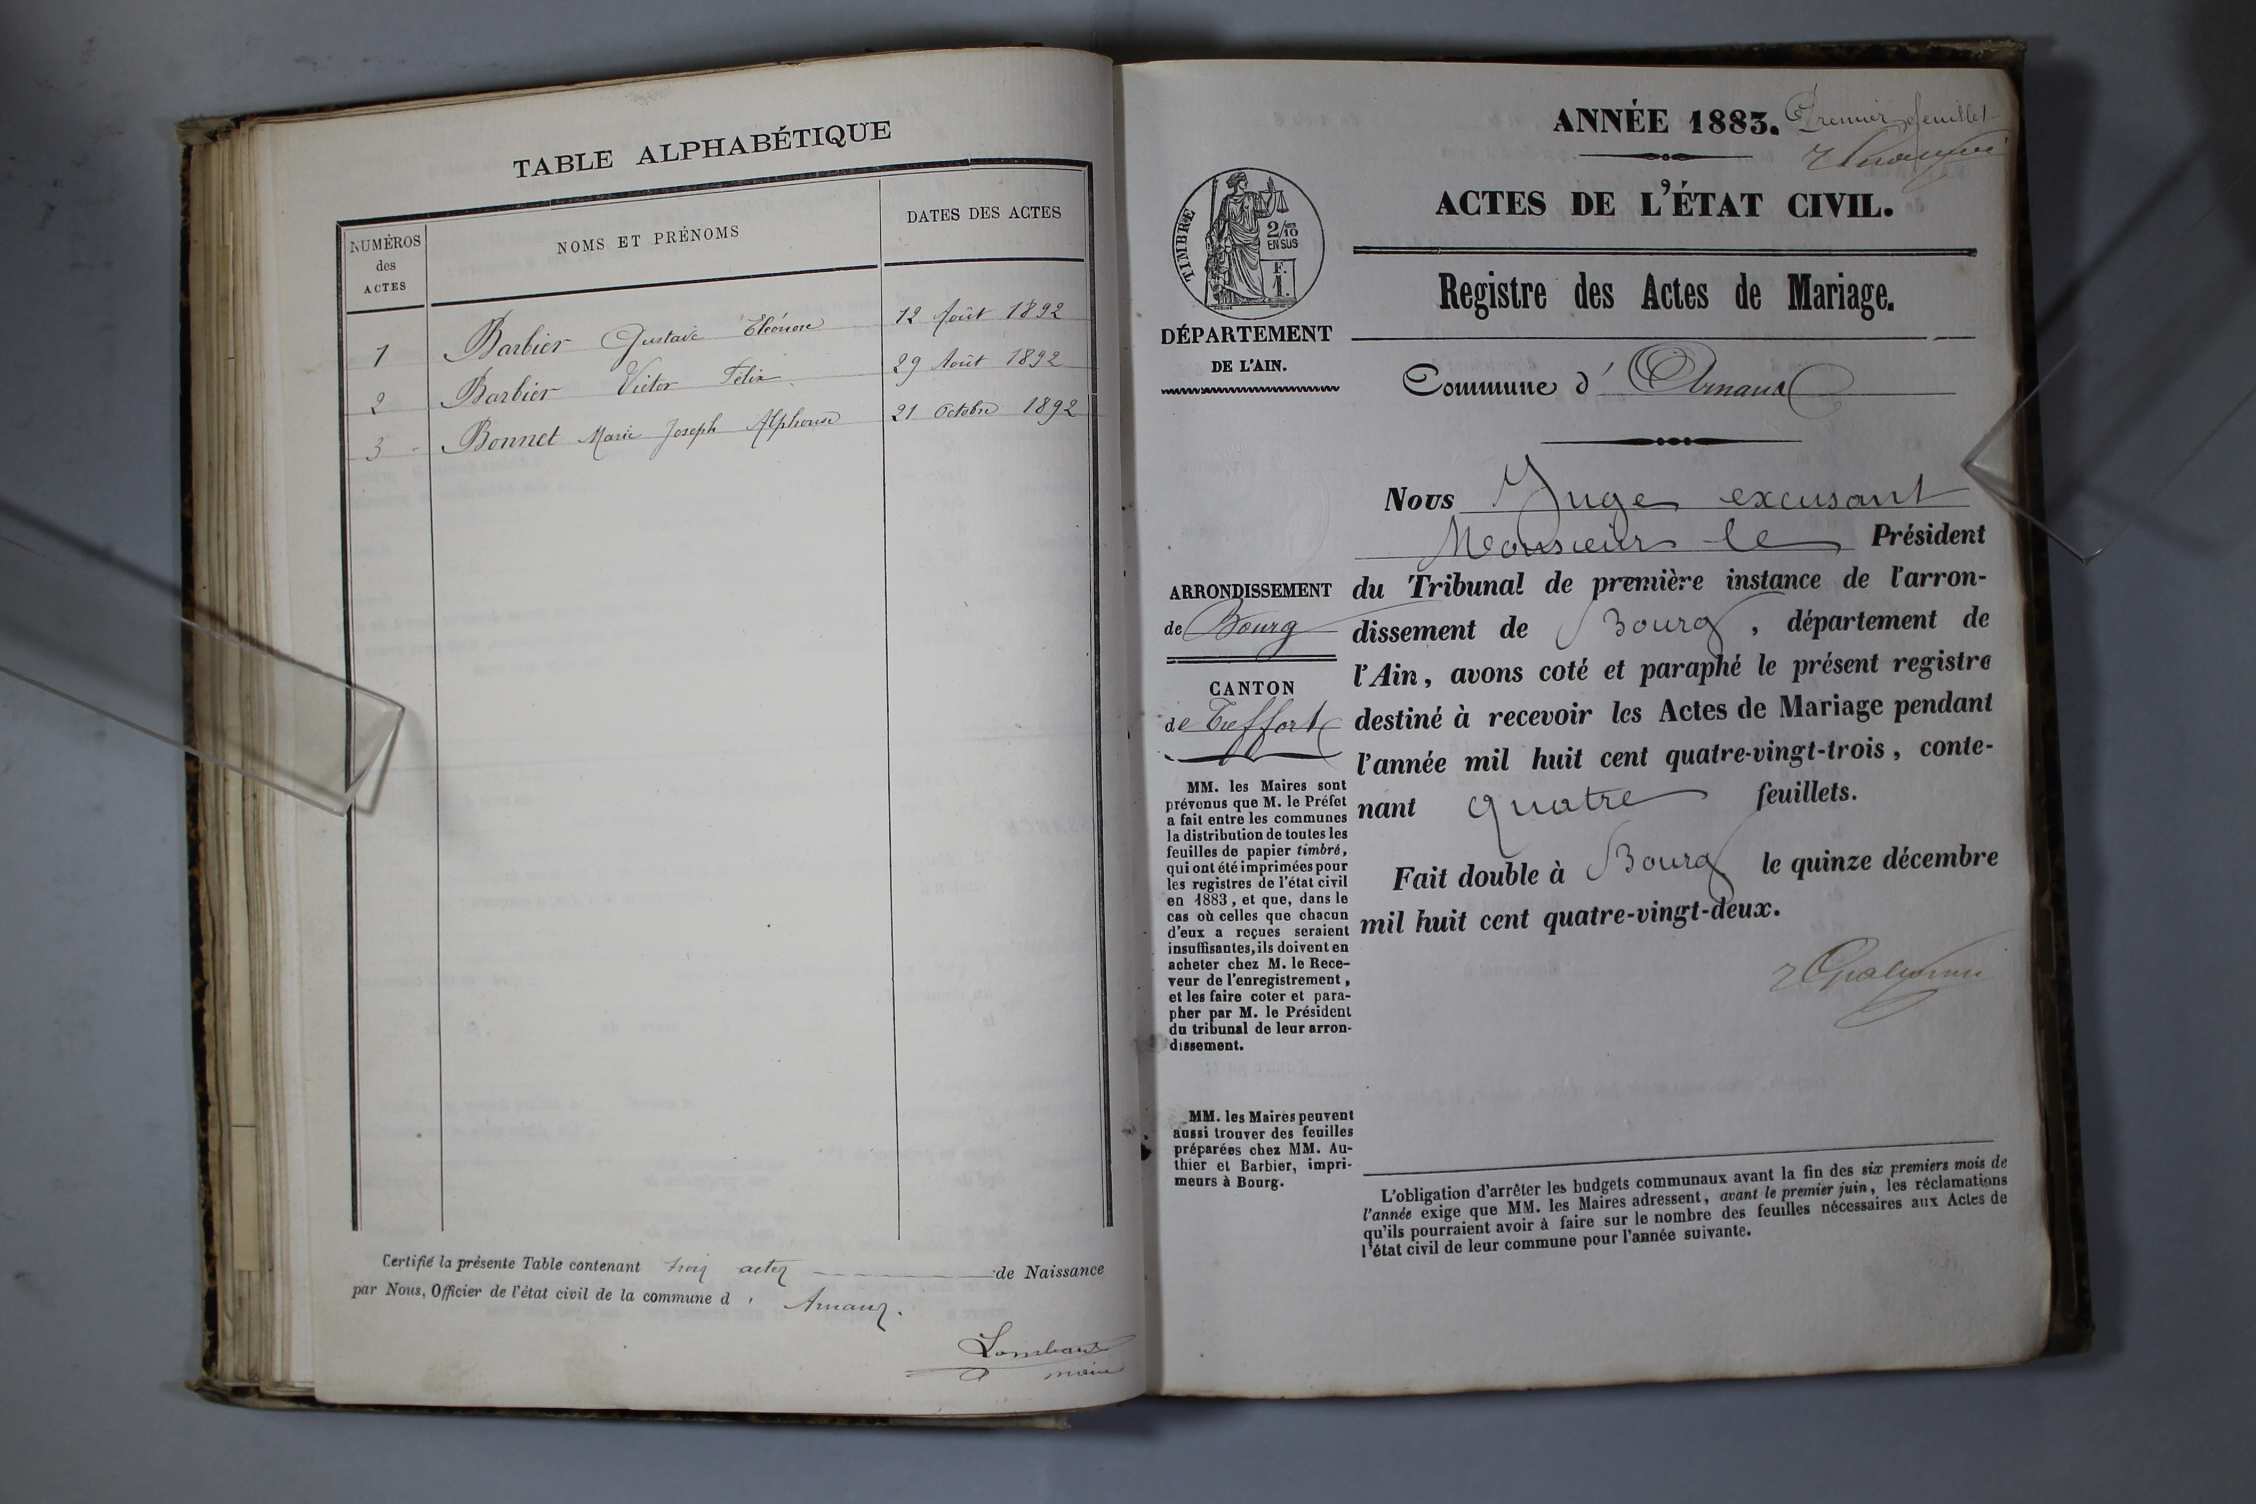 TABLE ALPHABÉTIQUE
NUMÉROS
des
ACTES
NOMS ET PRÉNOMS
DATES DES ACTES
1 Barbier Gustave Eléonore 12 Août 1892
2 Barbier Victor Félix 29 Août 1892
3 Bonnet Marie Joseph Alphonse 21 Octobre 1892
Certifié la présente Table contenant trois actes de Naissance
par Nous, Officier de l'état civil de la commune d' Arnans.
maire
ANNÉE 1883.
Premier feuillet
ACTES DE L'ÉTAT CIVIL.
TIMBRE
2/10
EN SUS
F.
1.
Registre des Actes de Mariage.
DÉPARTEMENT
DE L'AIN.
Commune d' Arnans
Nous Juge excusant
Monsieur le Président
du Tribunal de première instance de l'arron-
dissement de Bourg, département de
l'Ain, avons coté et paraphé le présent registre
destiné à recevoir les Actes de Mariage pendant
l'année mil huit cent quatre-vingt-trois, conte-
nant quatre feuillets.
Fait double à Bourg le quinze décembre
mil huit cent quatre-vingt-deux.
ARRONDISSEMENT
de Bourg
CANTON
de Treffort
MM. les Maires sont
prévenus que M. le Préfet
a fait entre les communes
la distribution de toutes les
feuilles de papier timbré,
qui ont été imprimées pour
les registres de l'état civil
en 1883, et que, dans le
cas où celles que chacun
d'eux a reçues seraient
insuffisantes, ils doivent en
acheter chez M. le Rece-
veur de l'enregistrement,
et les faire coter et para-
pher par M. le Président
du tribunal de leur arron-
dissement.
MM. les Maires peuvent
aussi trouver des feuilles
préparées chez MM. Au-
thier et Barbier, impri-
meurs à Bourg.
L'obligation d'arrêter les budgets communaux avant la fin des six premiers mois de
l'année exige que MM. les Maires adressent, avant le premier juin, les réclamations
qu'ils pourraient avoir à faire sur le nombre des feuilles nécessaires aux Actes de
l'état civil de leur commune pour l'année suivante.